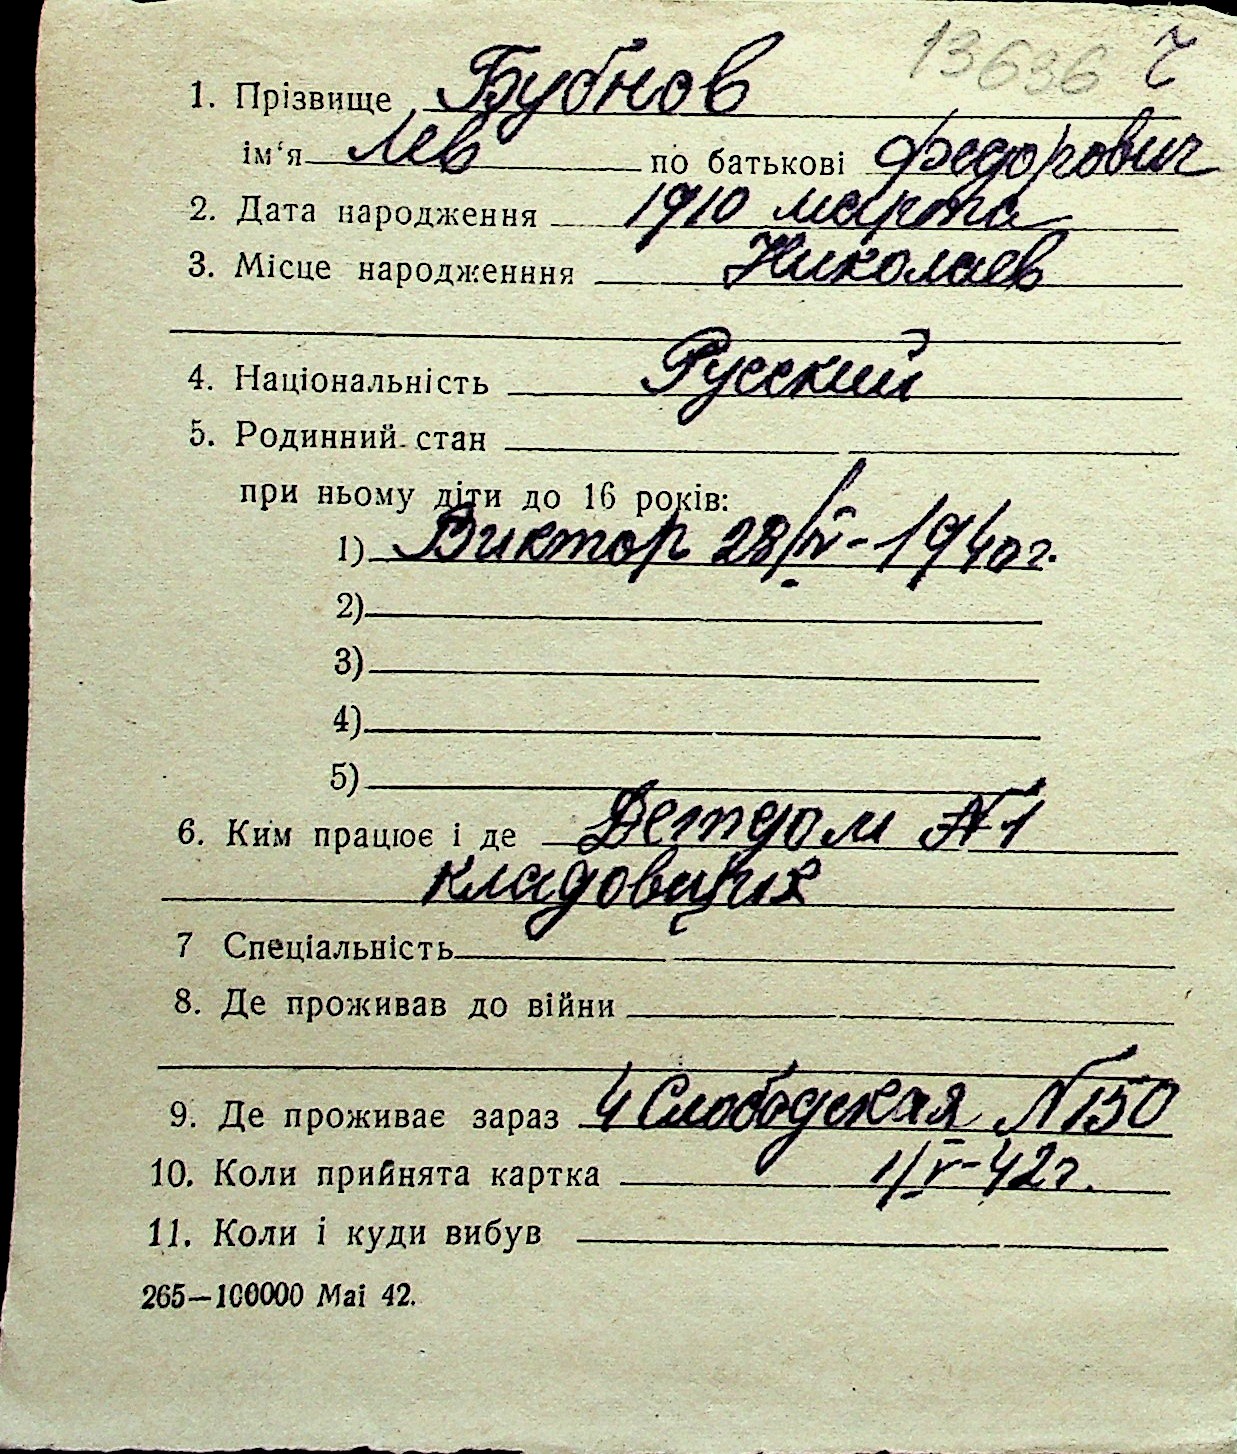 13636 ч
1. Прізвище Бубнов
ім'я Лев по батькові Федорович
2. Дата народження 1910 марта
3. Місце народженння Николаев
4. Національність Русский
5. Родинний стан
при ньому діти до 16 років:
1) Виктор 28/IV-1940г.
2)
3)
4)
5)
6. Ким працює і де Детдом №1
кладовщик
7 Спеціальність
8. Де проживав до війни
9. Де проживає зараз 4 Слободская №150
10. Коли прийнята картка 1/V-42г.
11. Коли і куди вибув
265—100000 Mai 42.